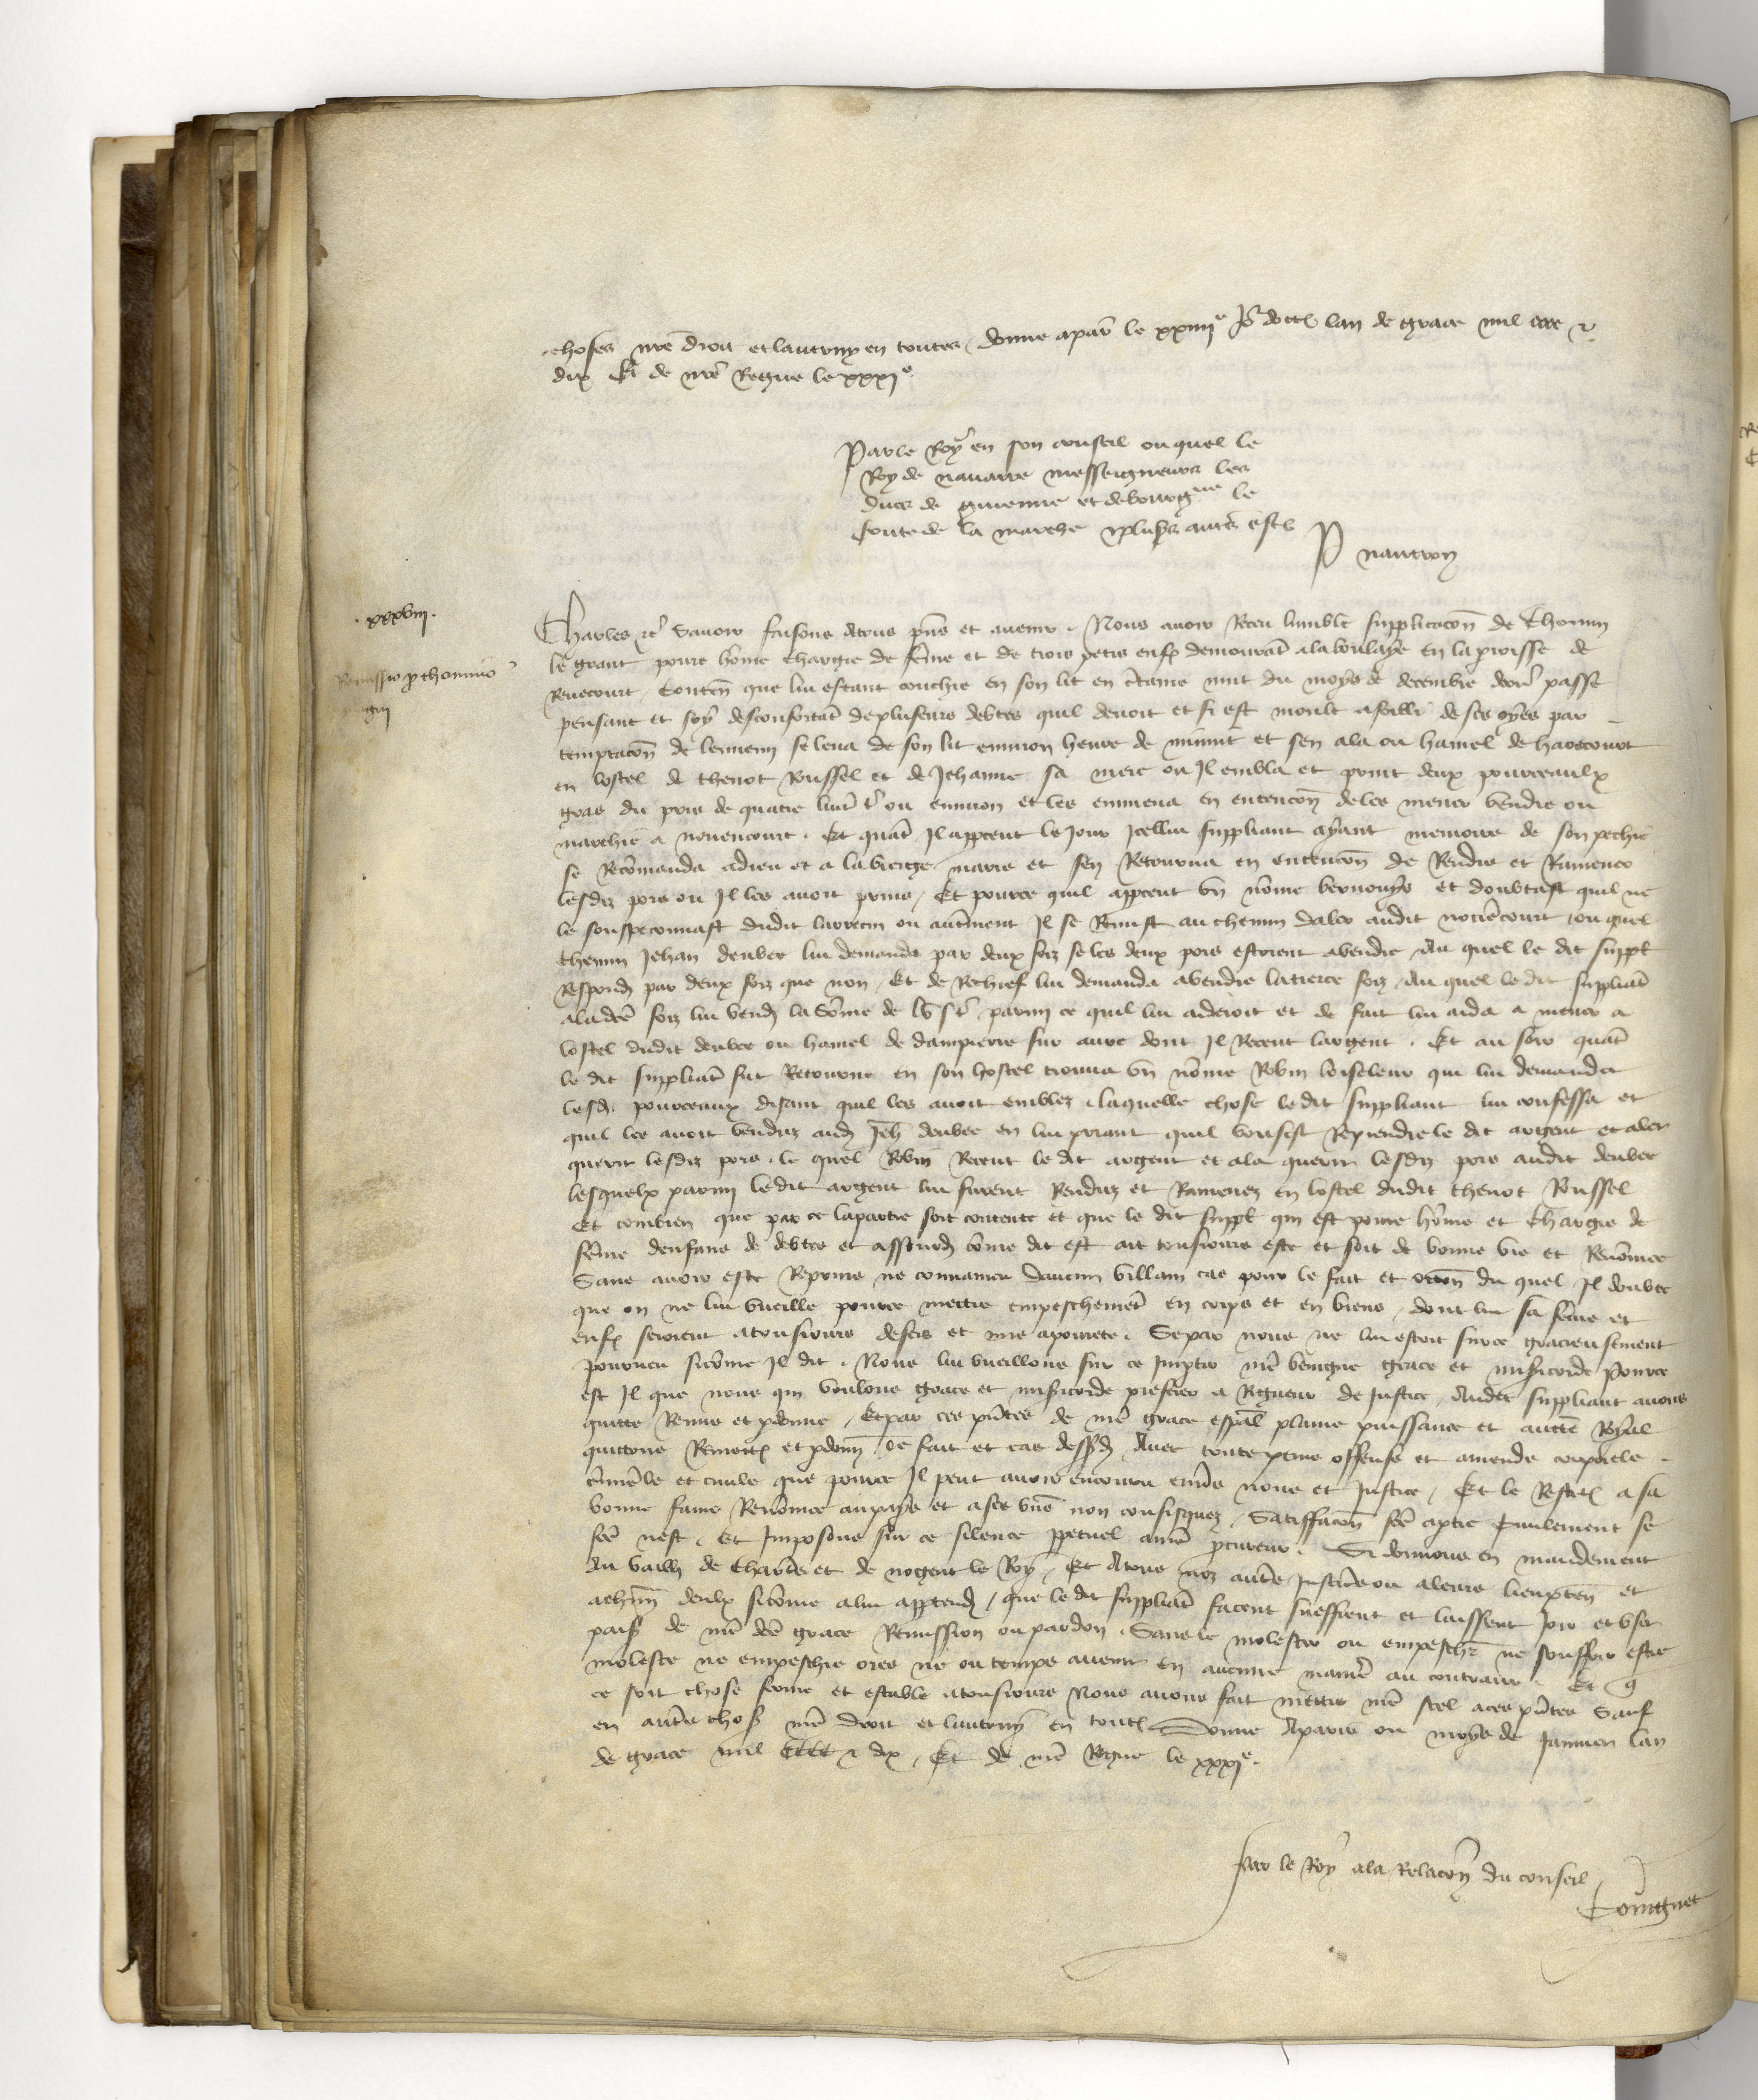 choses nre droit et lautruy en toutes donne a par le xxiiiie Jo doctob lan de grace mil cccc &
dix Et de nre Regne le xxxie
Par le Roy en son conseil ouquel le
Roy de navarre messeigneurs les
ducs de guienne et de bourgne le
conte de la marche & plus autres est
P nautron
xxxviii
Remissio p thomino
Charles etc savoir faisons Atous pns et avenir Nous avoir Receu lumble supplicacon de Thomin
le grant povre home chargie de feme et de trois petis enf demourat ala boulaye en la proisse de
Revecourt Conten que lui estant couchie en son lit en ctaine nuit du moys de decembre derr passe
pensant et soy desconfortat de pluseurs debtes quil devoit et si est moult de ses par
temptacon de lennemi se leva de son lit environ heure de minuit et sen ala ou hamel de havecourt
en lostel de thenot Roussel et de Jehanne sa mere ou Il embla et print deux pourceaulx
gras du pris de quatre livr t ou environ et les emmena en entencon de les mener vendre ou
marchie a novencourt Et quat Il appceut le Jour Icellui suppliant ayant memoire de son pechie
se Recomanda a dieu et a la vierge marie et sen Retourna en entencon de Rendre et Ramener
lesdiz pors ou Il les avoit prins Et pource quil appceut vn nomme vernouys et doubtast quil ne
le souspeconnast dudit larrecin ou autment Il se Remist au chemin daler audit novencourt ouquel
chemin Jehan denbec lui demanda par deux foiz se les deux pors estoient a vendre Au quel le dit suppl
Respond par deux foiz que non Et de Rechief lui demanda a vendre la tierce foiz Au quel le dit suppliat
ala dce foiz lui vend la some de lv s t parmi ce quil lui aideroit et de fait lui aida a mener a
lostel dudit denbec ou hamel de dampierre sur avre dont Il Receut largent Et au soir quat
le dit suppliat fut Retourne en son hostel trouva vn nomme Robin loiseleur qui lui demanda
lesd pourceaux disant quil les avoit emblez laquelle chose le dit suppliant lui confessa et
quil les avoit venduz aud Jeh denbec en lui priant quil voulsist Reprendre le dit argent et aler
querir lesdiz pors le quel Robin Receut le dit argent et ala querir lesdiz pors audit denbec
lesquelx parmi ledit argent lui furent Renduz et Ramenez en lostel dudit thenot Roussel
Et combien que par ce la partie soit contente et que le dit suppl qui est povre home et chargie de
feme denfans de debtes et come dit est ait tousiours este et soit de bonne vie et Renomee
Sans avoir este Reprins ne convaincu daucun villain cas pour le fait et occon du quel Il doubte
que on ne lui vueille pource mettre empeschemet en corps et en biens dont lui sa feme et
enf seroient atousiours desers et mis a povrete Se par nous ne lui estoit sur ce gracieusement
pourveu sicome Il dit Nous lui vueillons sur ce Imptir nre benigne grace et misicorde Pource
est Il que nous qui voulons grace et misicorde preferer a Rigueur de Justice Audit suppliant avons
quitte Remis et pdonne Et par ces pntes de nre grace espal plaine puissance et auctte Royal
quittons Remett et pdonn le fait et cas dessusd Avec toute peine offense et amende corporele
cimiele et civile que pource Il peut avoir encouru envs nous et Justice Et le Restit a sa
bonne fame Renomee au pays et a ses biens non confisquez Satisfacon fce a ptie civilement se
fce nest Et Imposons sur ce silence ppetuel a nre pcureur Si donnons en mandement
Au bailli de Chartres et de nogent le Roy Et Atous noz autres Justiciers ou a leurs lieuxten et
achun deulx sicome alui apptend que le dit suppliat facent sueffrent et laissent Joir et user
paisi de nre dce grace Remission ou pardon Sans le molester ou empeschr ne souffrir estre
moleste ne empeschie ores ne ou temps avenir en aucune maniere au contraire Et q
ce soit chose ferme et estable atousiours Nous avons fait mettre nre scel a ces pntes Sauf
en autres chos nre droit et lautruy en tout Donne A paris ou moys de Janvier lan
de grace mil CCCC & dix Et de nre Regne le xxxie
Par le Roy ala Relacon du conseil